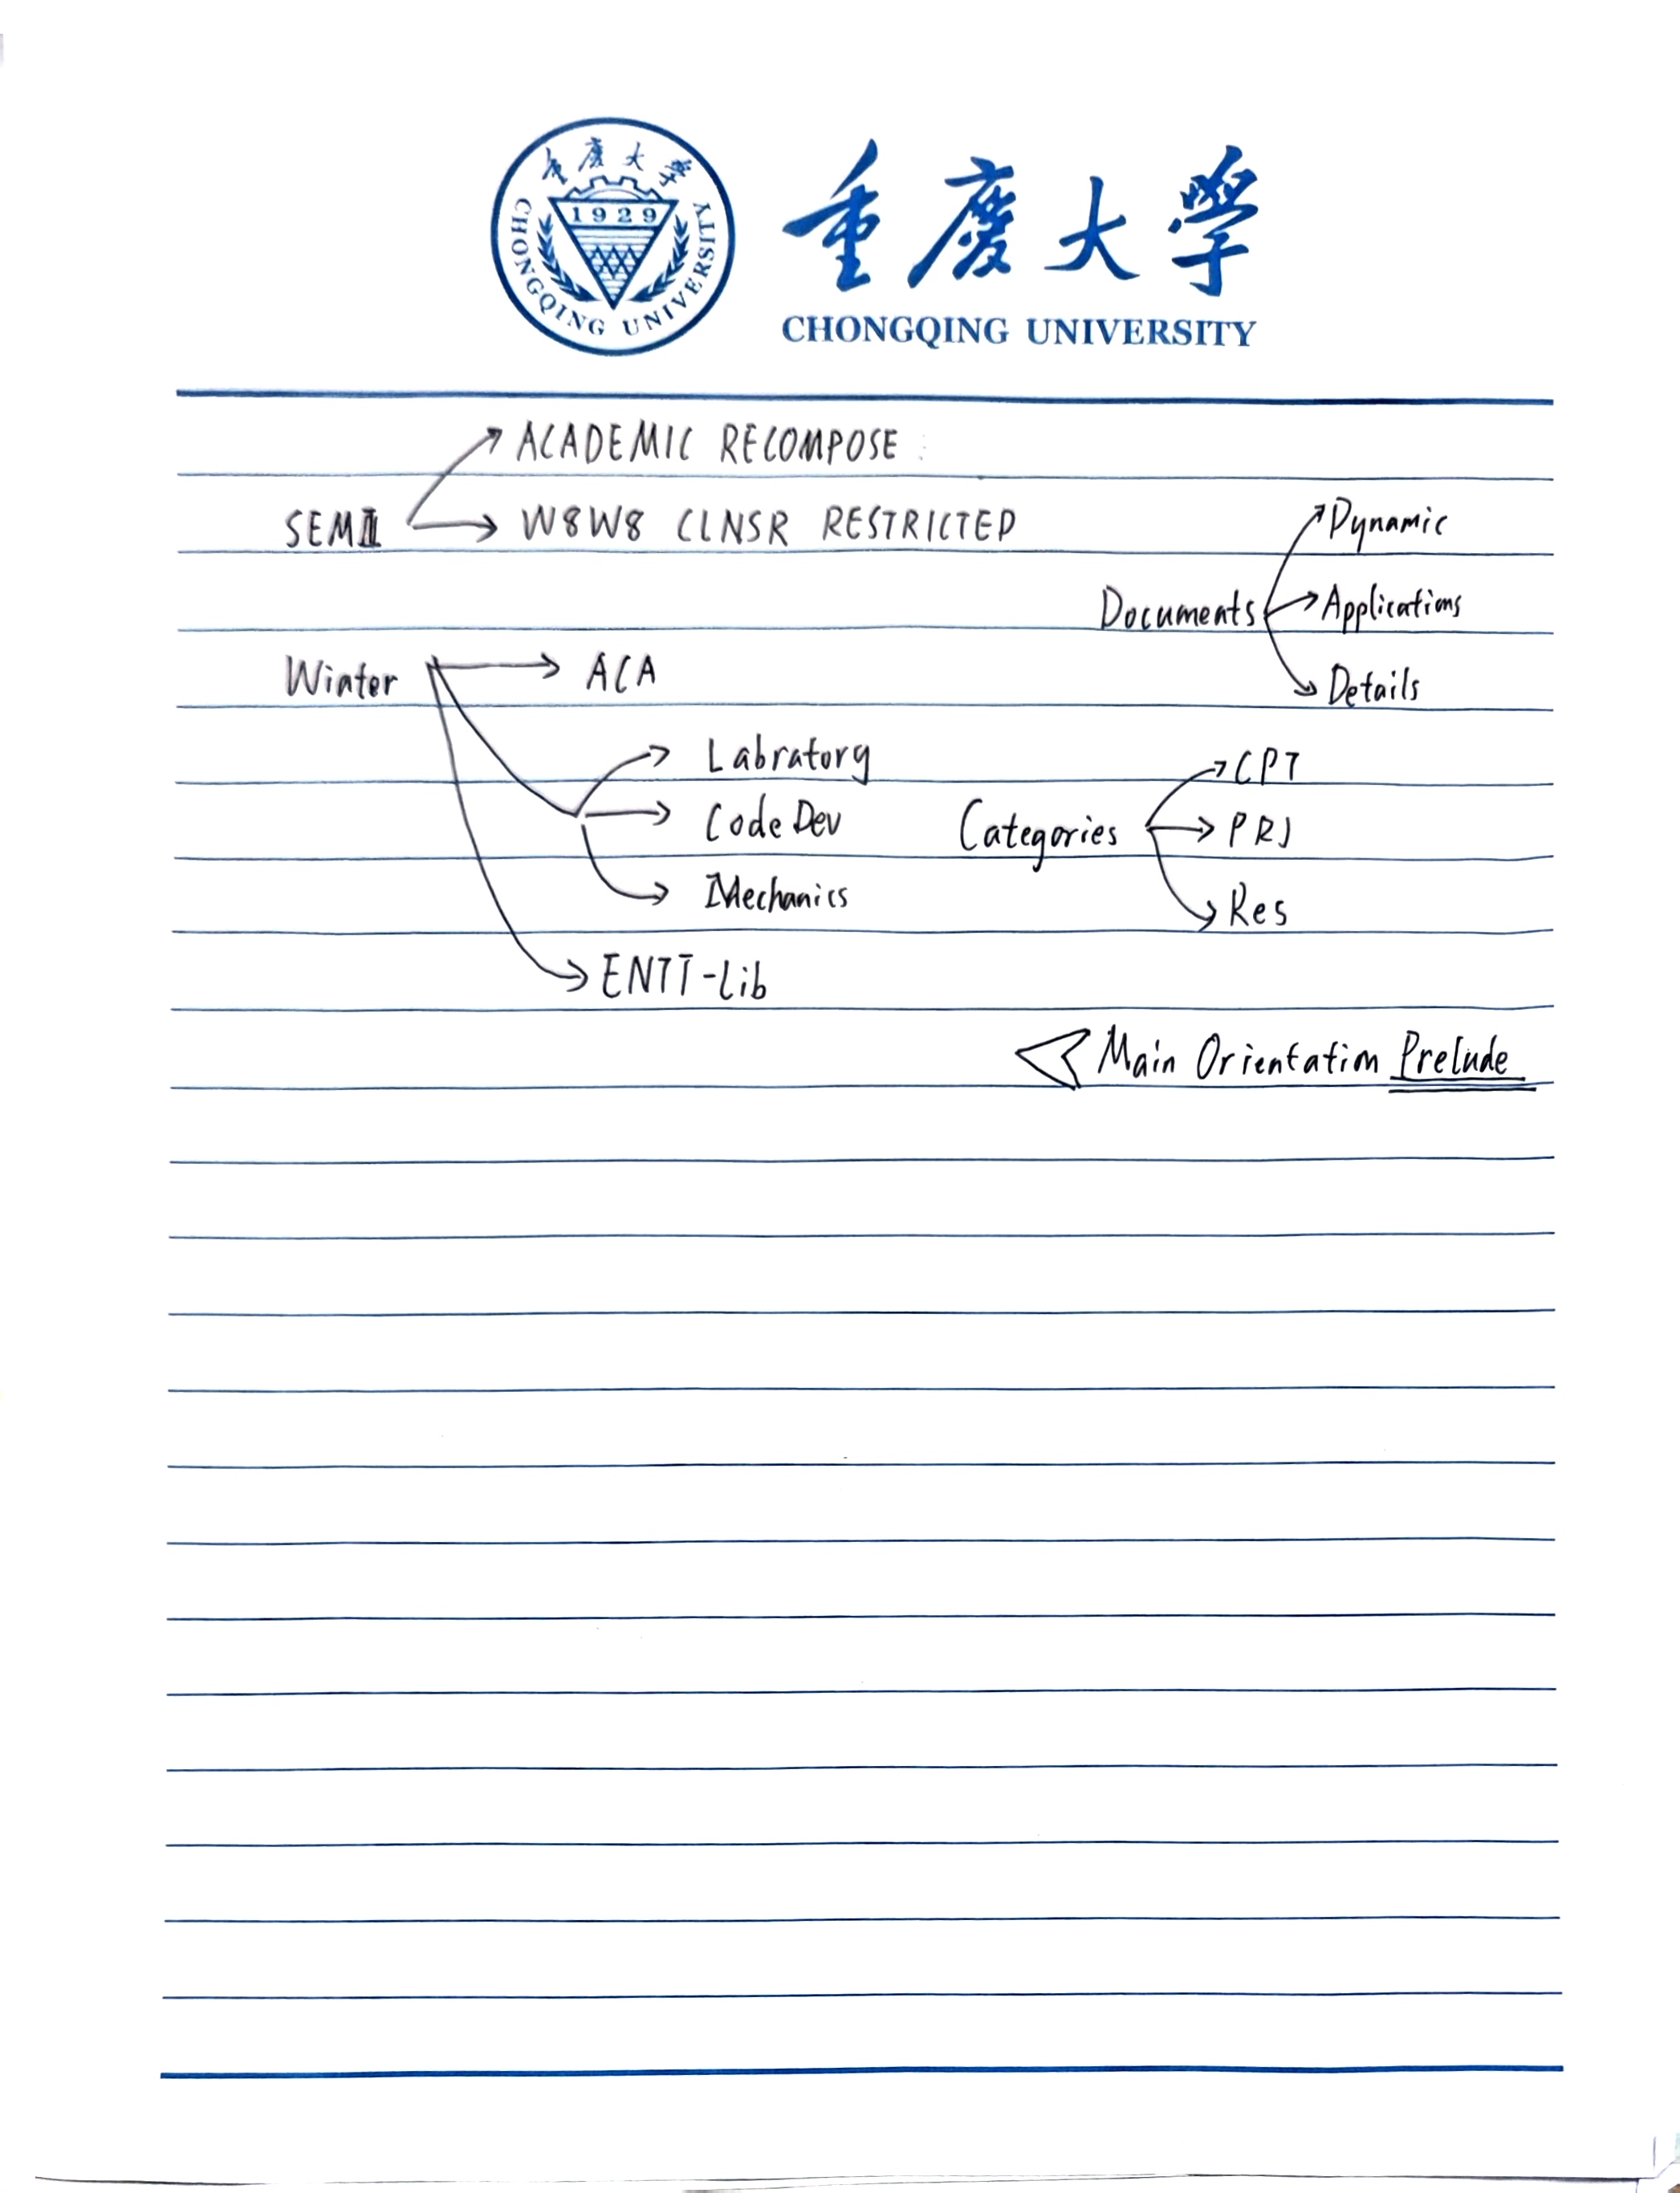 重慶大學
1929
CHONGQING UNIVERSITY
重慶大學
CHONGQING UNIVERSITY
ACADEMIC RECOMPOSE
SEMII
W8W8 CLNSR RESTRICTED
Dynamic
Documents
Applications
Details
Winter
ACA
Labratory
CodeDev
Mechanics
CPT
Categories
PRJ
Res
ENTT-Lib
Main Orientation Prelude